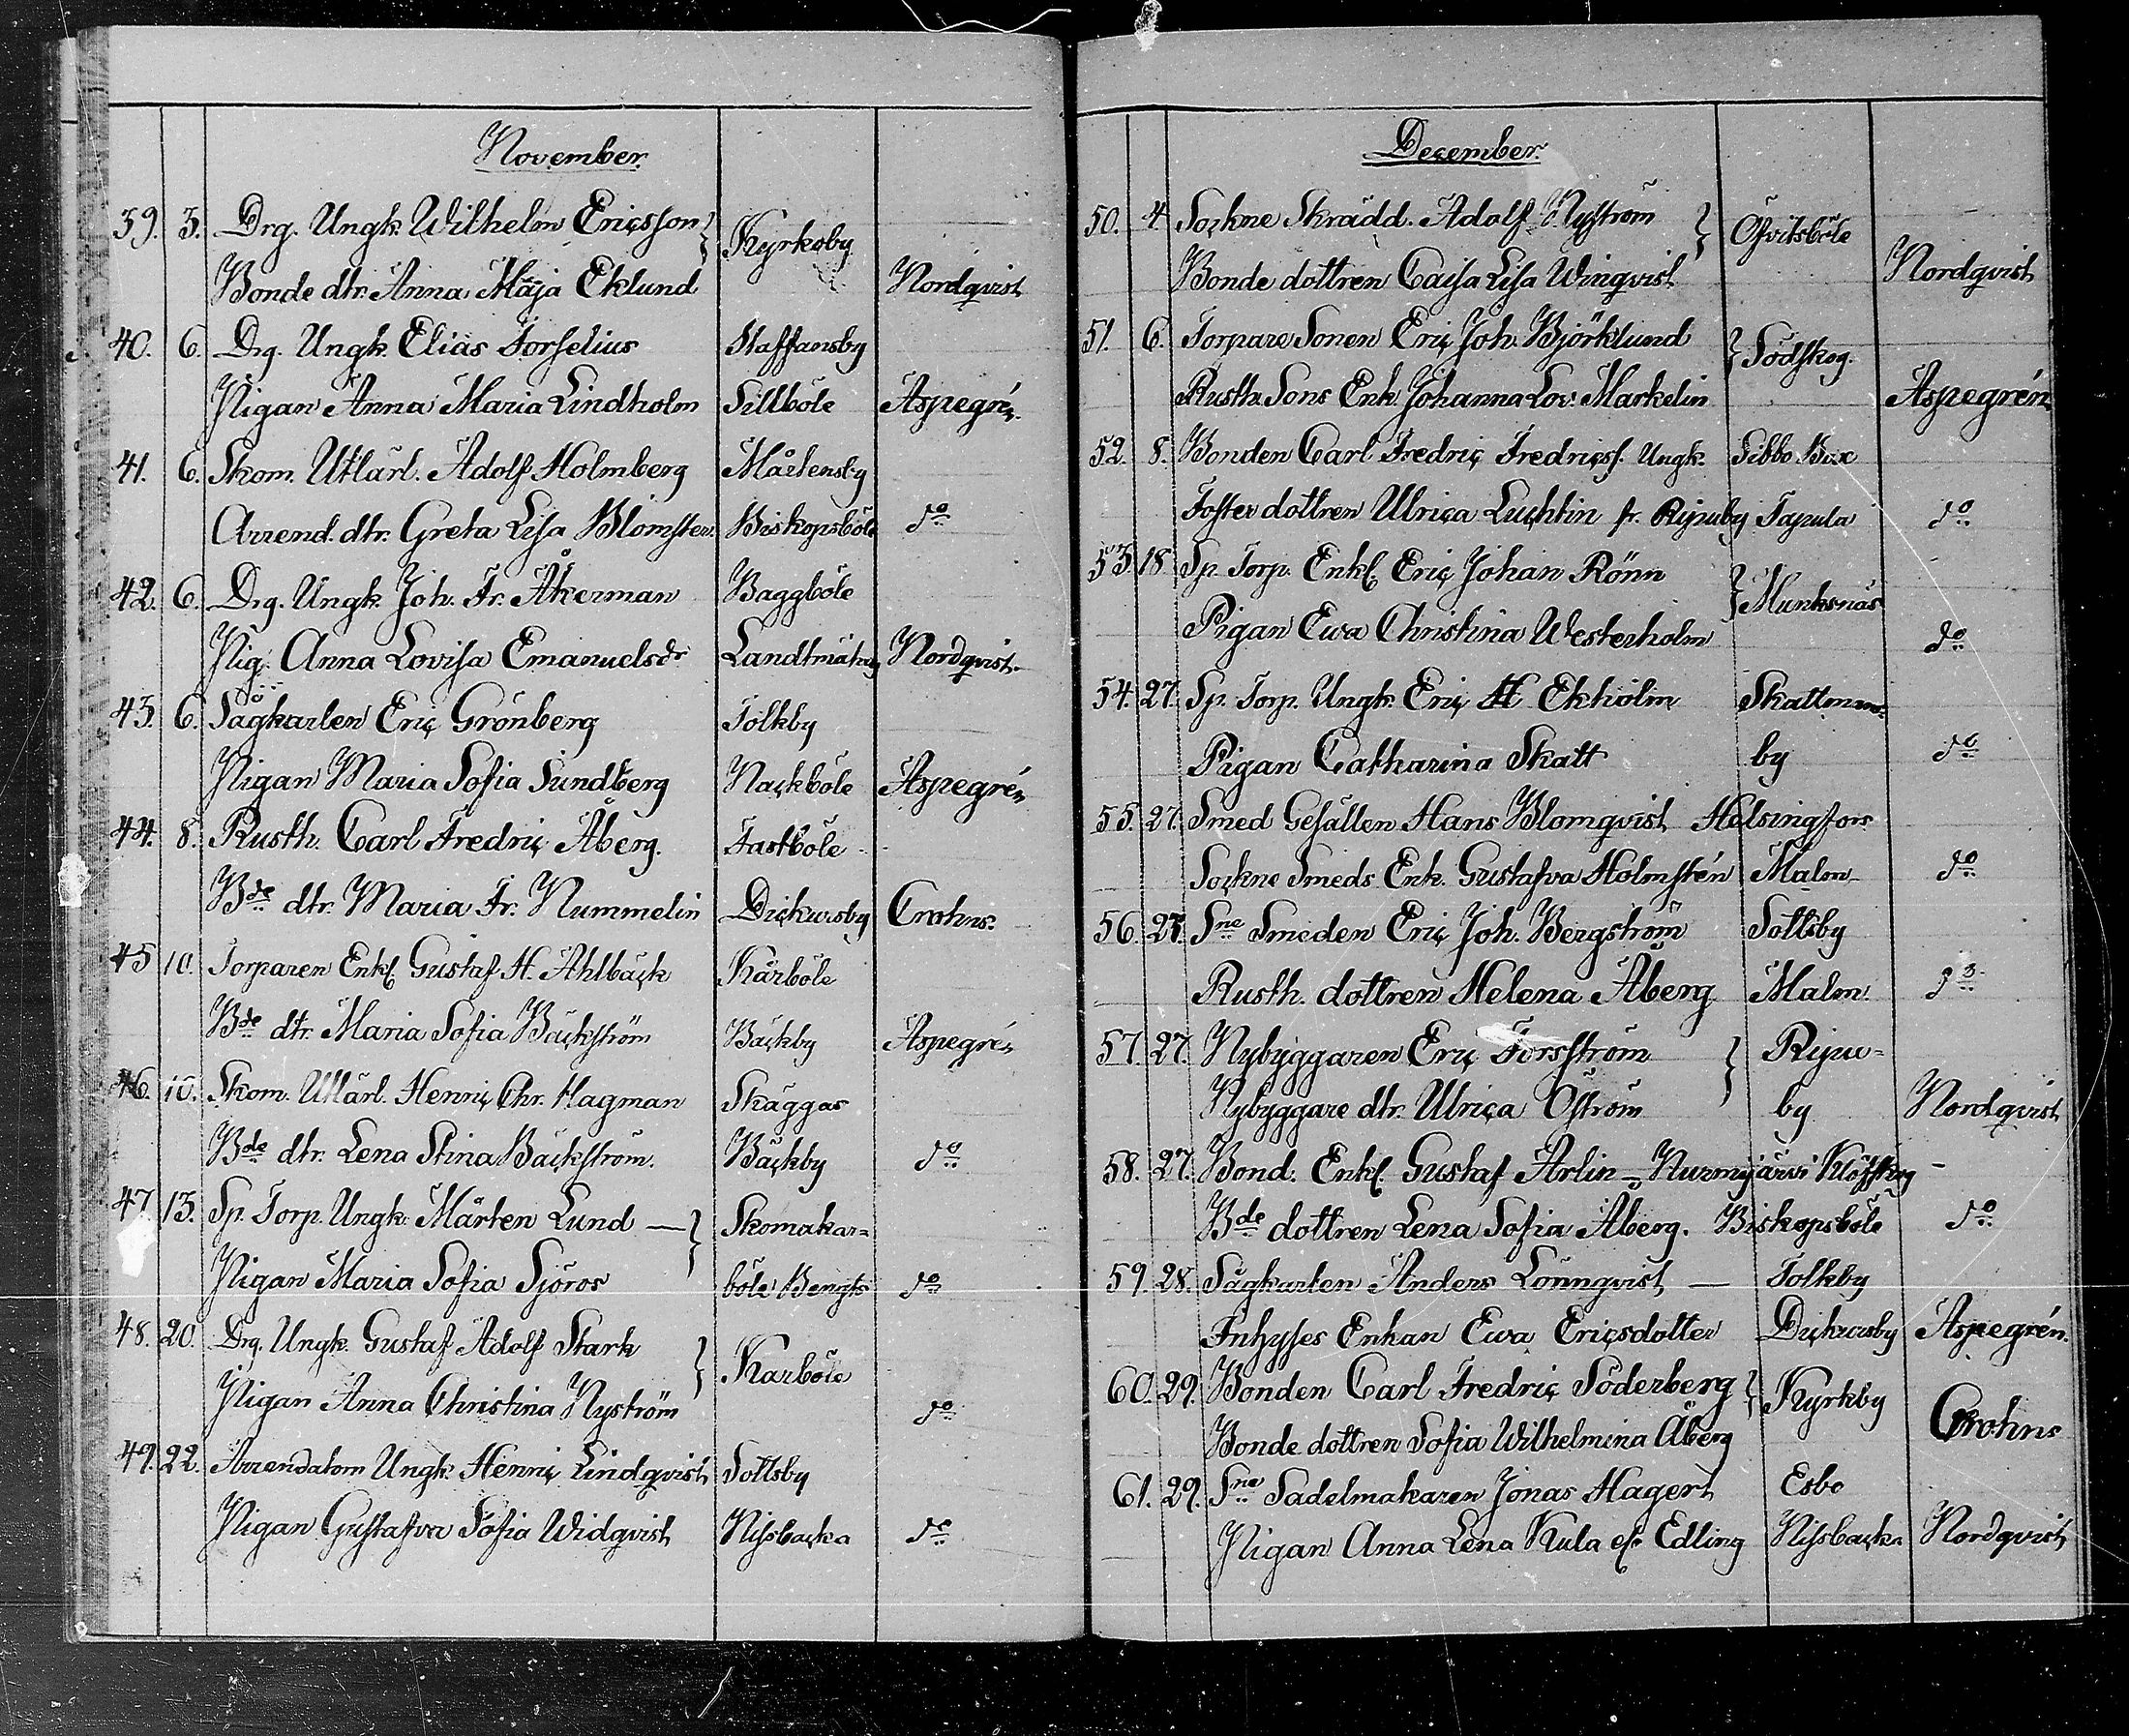 November.
39. 3. Drg. Ungk. Wilhelm Ericsson } Kyrkoby
Bonde dtr. Anna Maja Eklund Nordqvist
40. 6. Drg. Ungk. Elias Forselius Staffansby
Pigan Anna Maria Lindholm Sillböle Aspegrén.
41. 6. Skom. Utlärl. Adolf Holmberg Mårtensby
Arrend. dtr. Greta Lisa Blomster. Biskopsböle do
42. 6. Drg. Ungk. Joh. Fr. Åkerman Baggböle
Pig. Anna Lovisa Emanuelsdr Nordqvist.
43. 6. Sågkarlen Eric Grönberg Tolkby
Pigan Maria Sofia Sundberg Nackböle Aspegrén
44. 8. Rusth. Carl Fredric Åberg. Fastböle
Bde dtr. Maria Fr. Nummelin Dickursby Crohns.
45 10. Torparen Enkl. Gustaf H. Ahlbäck Kårböle
Bde dtr. Maria Sofia Bäckström Bäckby Aspegrén
46. 10. Skom. Utlärl. Henric Chr. Hagman Skaggas
Bde dtr. Lena Stina Bäckström. Bäckby do
47 13. Sp. Torp. Ungk. Mårten Lund — } Skomakar=
Pigan Maria Sofia Sjöros böle Bengts do
48. 20. Drg. Ungk. Gustaf Adolf Stark } Kårböle
Pigan Anna Christina Nyström do
49. 22. Arrendatorn Ungk. Henric Lindqvist Sottsby
Pigan Gustafva Sofia Widqvist Nissbacka do
December.
50. 4. Sockne Skrädd. Adolf Nyström } Öfvitsböle
Bonde dottren Caisa Lisa Winqvist Nordqvist
51. 6. Torpare Sonen Eric Joh. Björklund } Sodskog.
Rusth. Sons Enk. Johanna Lov. Markelin Aspegrén
52. 8. Bonden Carl Fredric Fredricss. Ungk. Sibbo Box
Foster dottren Ulrica Luchtin fr. Ripuby Tapula do
53. 18. Sp. Torp. Enkl. Eric Johan Rönn } Munksnäs
Pigan Ewa Christina Westerholm do
54. 27. Sp. Torp. Ungk. Eric H Ekholm Skattmans=
Pigan Catharina Skatt by do
55. 27. Smed Gesällen Hans Blomqvist Helsingfors
Sockne Smeds Enk. Gustafva Holmstén Malm do
56. 27. Sne Smeden Eric Joh. Bergström Sottsby
Rusth. dottren Helena Åberg Malm. do
57. 27. Nybyggaren Eric Forsström } Ripu=
Nybyggare dtr. Ulrica Öström by Nordqvist
58. 27. Bond. Enkl. Gustaf Arlin — Nurmijärvi Klöfskog
Bde dottren Lena Sofia Åberg. Biskopsböle do
59. 28. Sågkarlen Anders Lönnqvist — Tolkby
Inhyses Enkan Ewa Ericsdotter Dickursby Aspegrén.
60. 29. Bonden Carl Fredric Söderberg } Kyrkby
Bonde dottren Sofia Wilhelmina Åberg Crohns
61. 29. Sne Sadelmakaren Jonas Hagert Esbo
Pigan Anna Lena Kula el. Edling Nissbacka Nordqvist